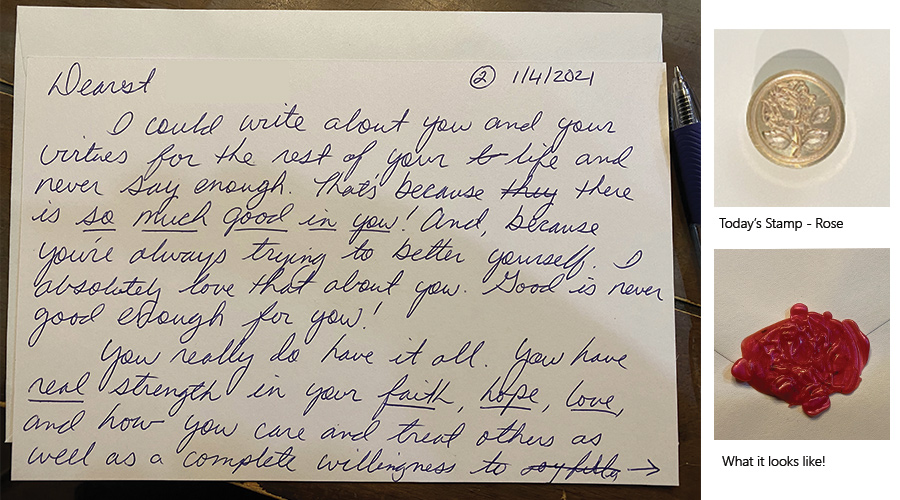 Dearest
② 1/4/2021
I could write about you and your
virtues for the rest of your life and
never say enough. That's because they there
is so much good in you! And, because
you're always trying to better yourself. I
absolutely love that about you. Good is never
good enough for you!
You really do have it all. You have
real strength in your faith, hope, love,
and how you care and treat others as
well as a complete willingness to →
Today's Stamp - Rose
What it looks like!